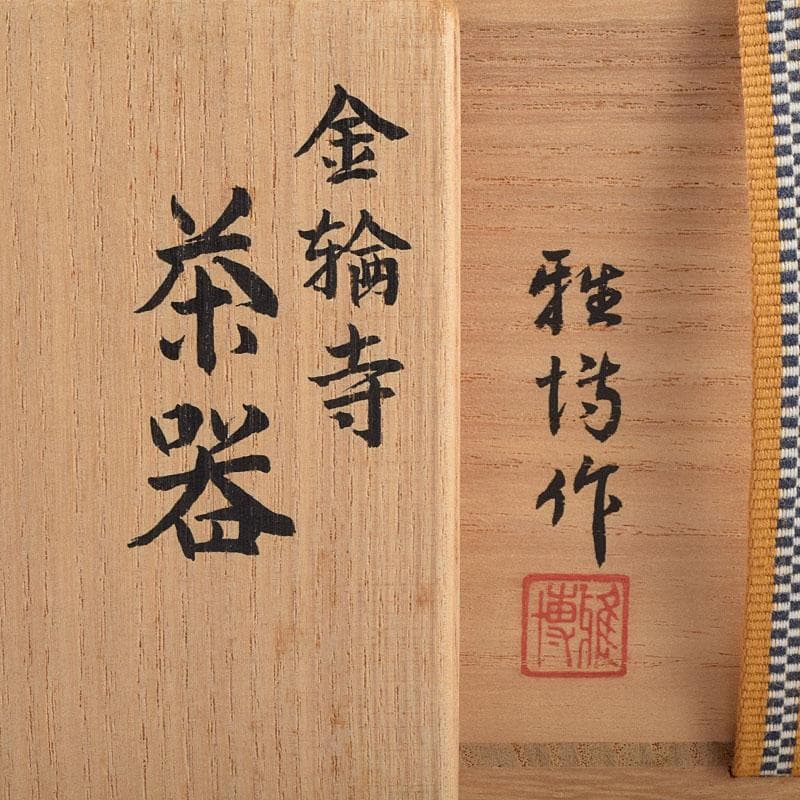 金輪寺
茶器
雅博作
雅博